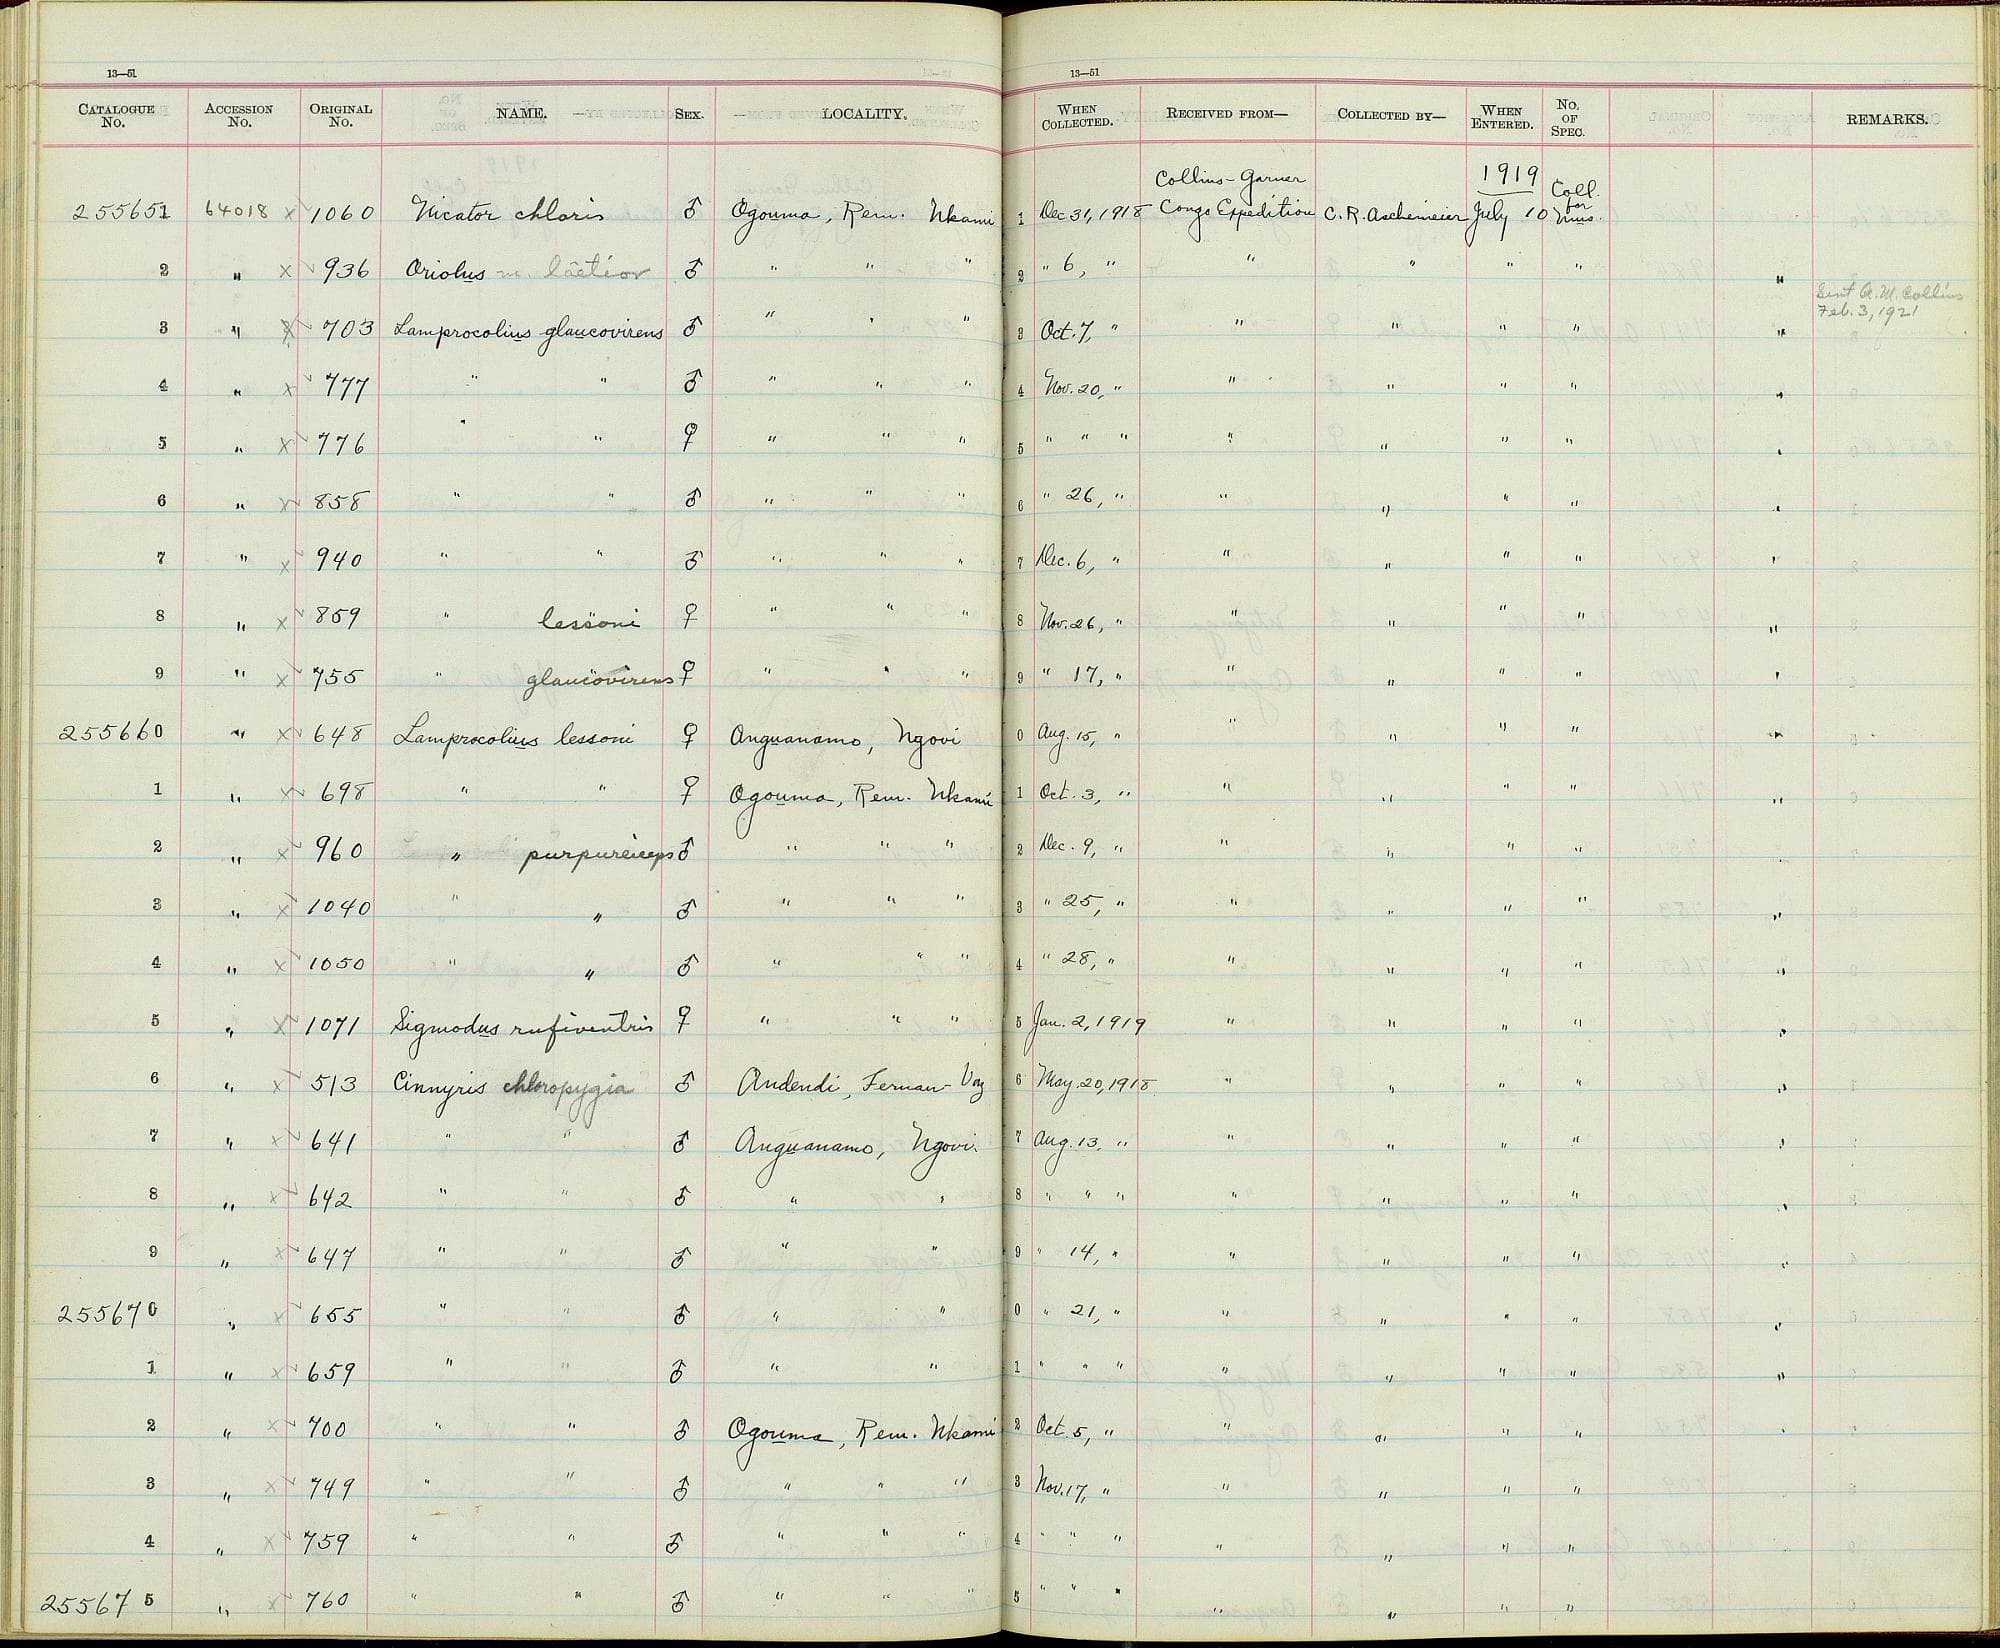 13—51
CATALOGUE No. ACCESSION No. ORIGINAL No. NAME. SEX. LOCALITY.
255651 64018 x ✓ 1060 Nicator chloris ♂ Ogouma, Rem. Nkami
2 " x ✓ 936 Oriolus m. laetior ♂ " " "
3 " x ✓ 703 Lamprocolius glaucovirens ♂ " " "
4 " x ✓ 777 " " ♂ " " "
5 " x ✓ 776 " " ♀ " " "
6 " x ✓ 858 " " ♂ " " "
7 " x ✓ 940 " " ♂ " " "
8 " x ✓ 859 " lessoni ♀ " " "
9 " x ✓ 755 " glaucovirens ♀ " " "
255660 " x ✓ 648 Lamprocolius lessoni ♀ Anguanamo, Ngovi
1 " x ✓ 698 " " ♀ Ogouma, Rem. Nkami
2 " x ✓ 960 " purpureiceps ♂ " " "
3 " x ✓ 1040 " " ♂ " " "
4 " x ✓ 1050 " " ♂ " " "
5 " x ✓ 1071 Sigmodus rufiventris ♀ " " "
6 " x ✓ 513 Cinnyris chloropygia ♂ Andendi, Fernan-Vaz
7 " x ✓ 641 " " ♂ Anguanamo, Ngovi.
8 " x ✓ 642 " " ♂ " "
9 " x ✓ 647 " " ♂ " "
255670 " x ✓ 655 " " ♂ " "
1 " x ✓ 659 " " ♂ " "
2 " x ✓ 700 " " ♂ Ogouma, Rem. Nkami
3 " x ✓ 749 " " ♂ " " "
4 " x ✓ 759 " " ♂ " " "
255675 " x ✓ 760 " " ♂ " " "
13—51
WHEN COLLECTED. RECEIVED FROM— COLLECTED BY— WHEN ENTERED. No. OF SPEC. REMARKS.
Collins-Garner 1919 Coll. for
1 Dec 31, 1918 Congo Expedition C. R. Aschemeier July 10 Mus.
2 " 6, " " " " " "
Sent A. M. Collins
Feb. 3, 1921
3 Oct. 7, " " " " " "
4 Nov. 20, " " " " " "
5 " " " " " " " "
6 " 26, " " " " " "
7 Dec. 6, " " " " " "
8 Nov. 26, " " " " " "
9 " 17, " " " " " "
0 Aug. 15, " " " " " "
1 Oct. 3, " " " " " "
2 Dec. 9, " " " " " "
3 " 25, " " " " " "
4 " 28, " " " " " "
5 Jan. 2, 1919 " " " " "
6 May. 20, 1918 " " " " "
7 Aug. 13, " " " " " "
8 " " " " " " " "
9 " 14, " " " " " "
0 " 21, " " " " " "
1 " " " " " " " "
2 Oct. 5, " " " " " "
3 Nov. 17, " " " " "
4 " " " " " " "
5 " " " " " " "